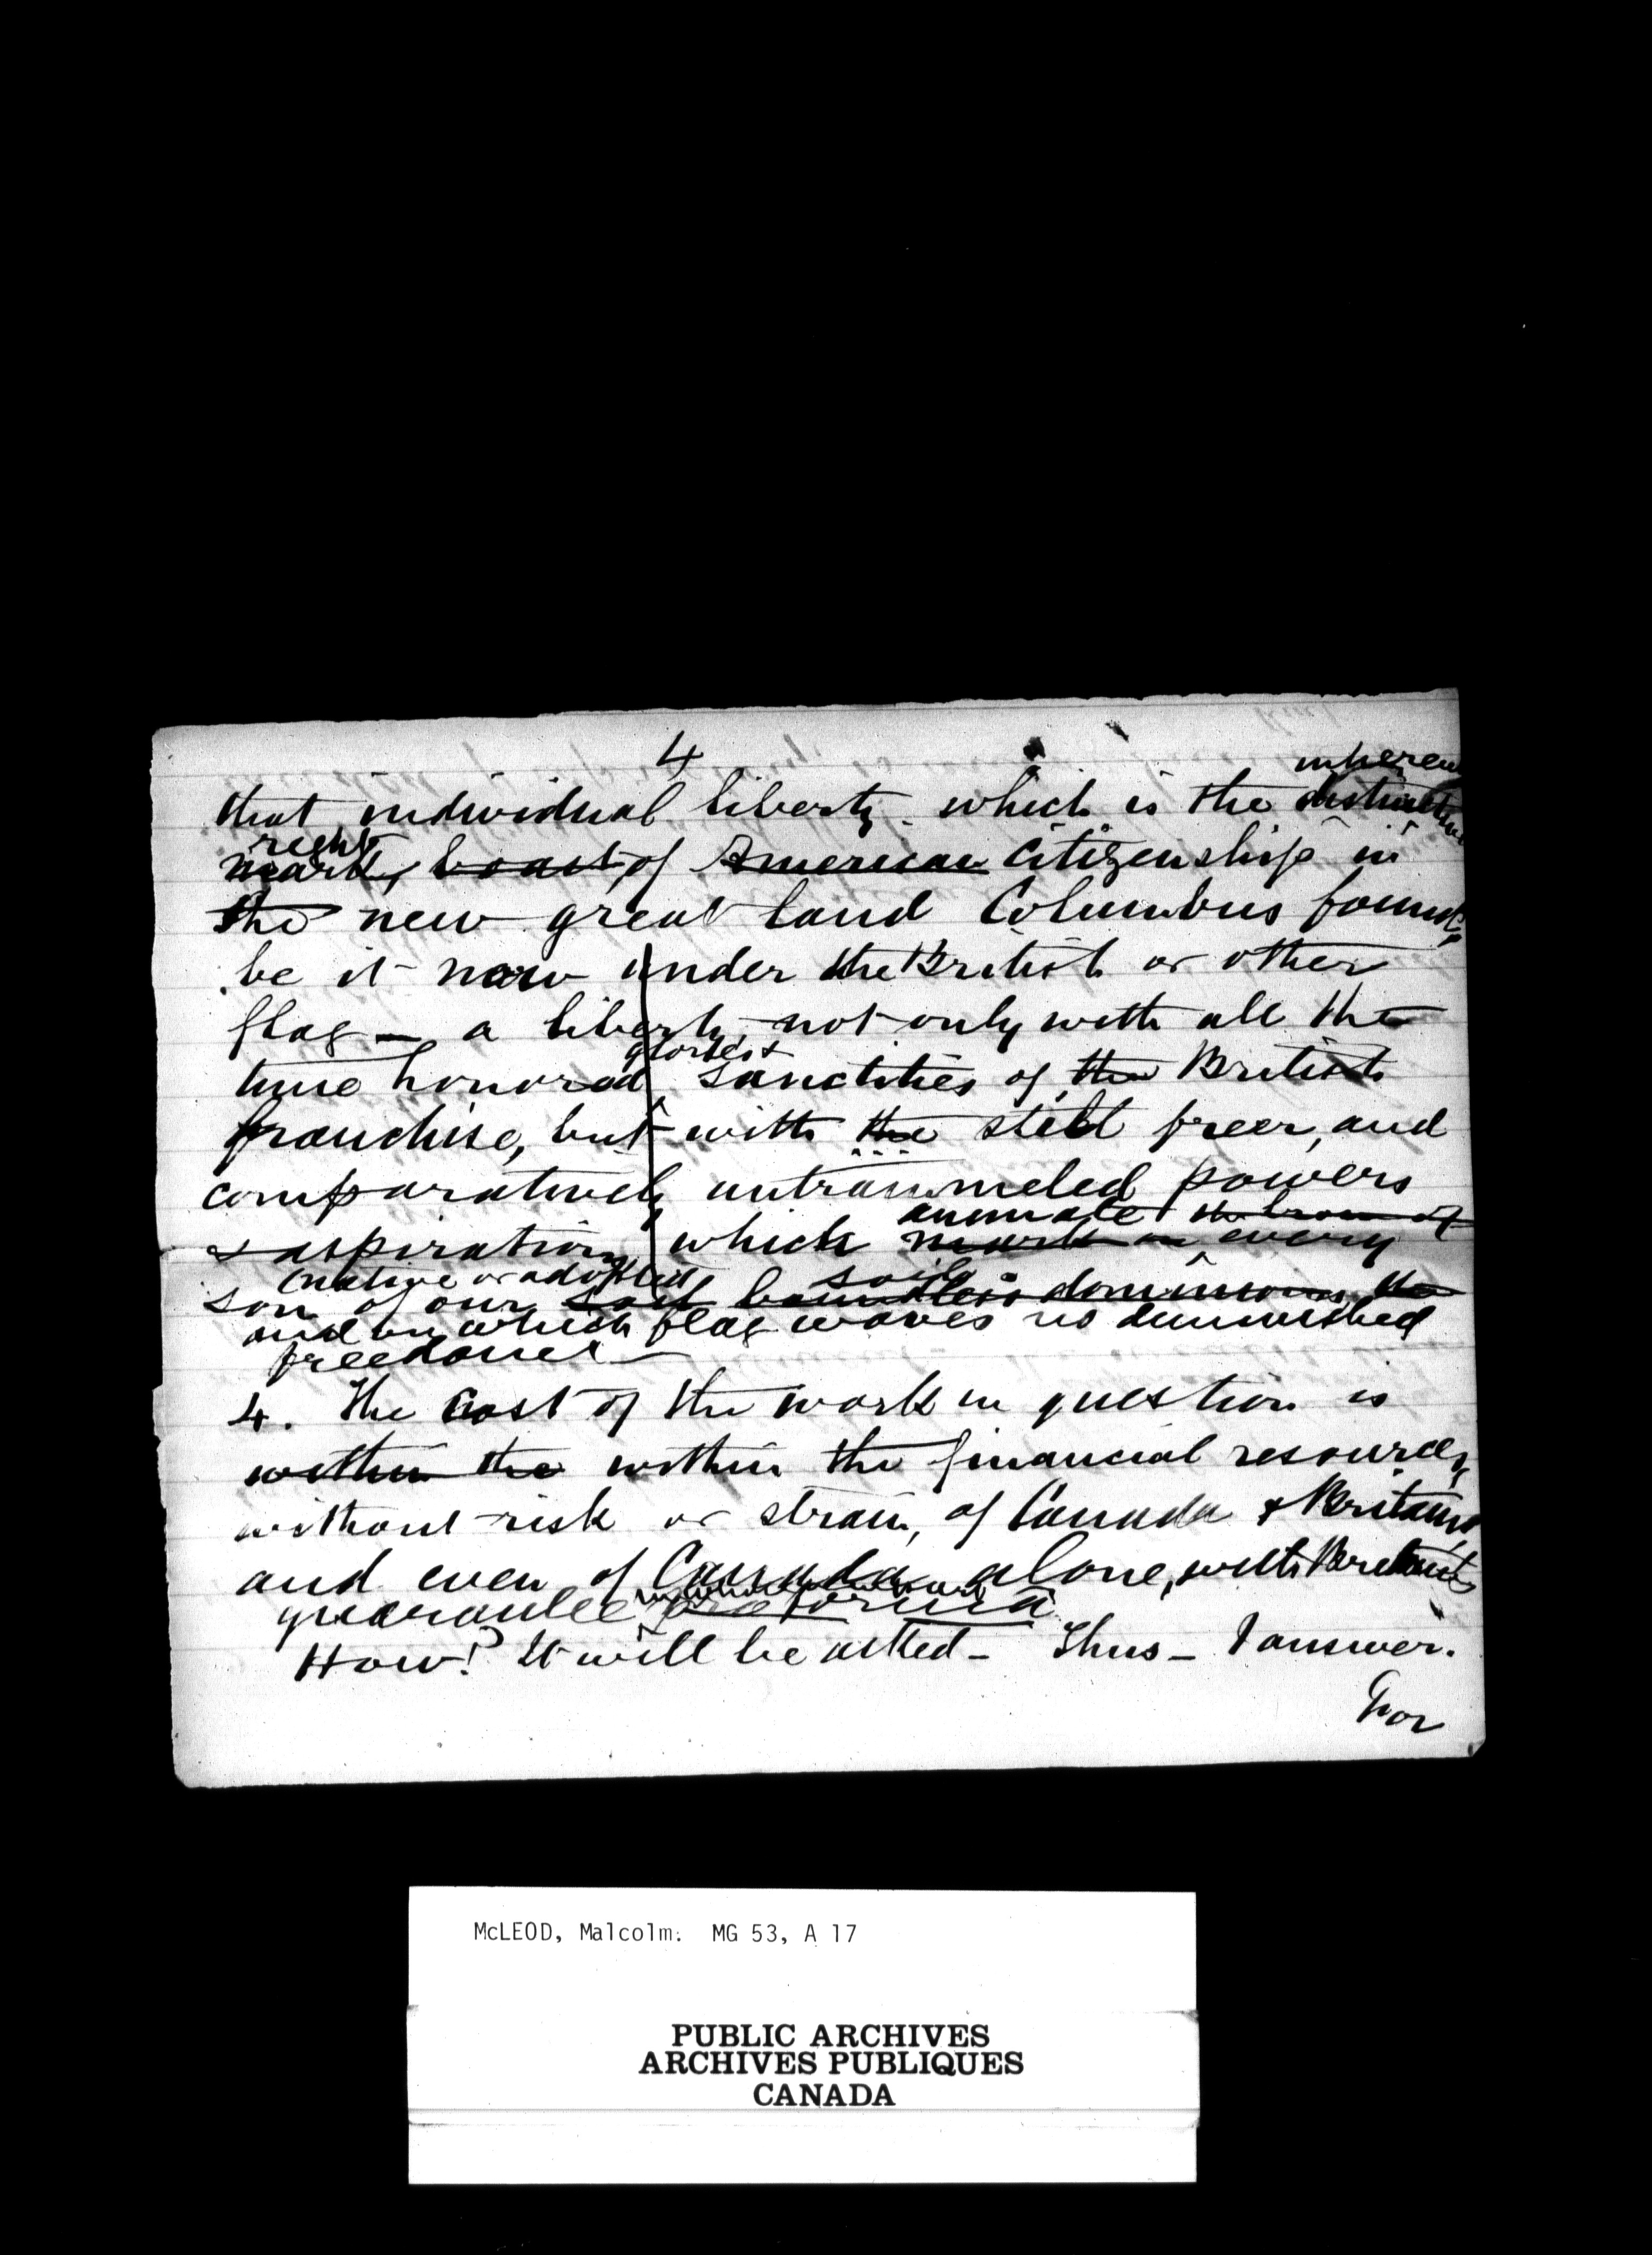 4
inheren
that individual liberty which is the distinctive
right
mark, boast, of American Citizenship in
the new great land Columbus found,
be it now under the British or other
flag — a liberty, not only with all the
glories &
time honored sanctities of the British
franchise, but with the still freer, and
comparatively untrammeled powers
animate
& aspirations which mark every
(native or adopted soil
son of our soil boundless dominions, the
and on which flag waves no diminished
freedom —
4. The cost of the work in question is
within the within the financial resources,
without risk or strain, of Canada & Britain,
and even of Canada alone, with Britain's
guarantee pro forma
How? It will be asked — Thus — I answer.
For
McLEOD, Malcolm. MG 53, A 17
PUBLIC ARCHIVES
ARCHIVES PUBLIQUES
CANADA